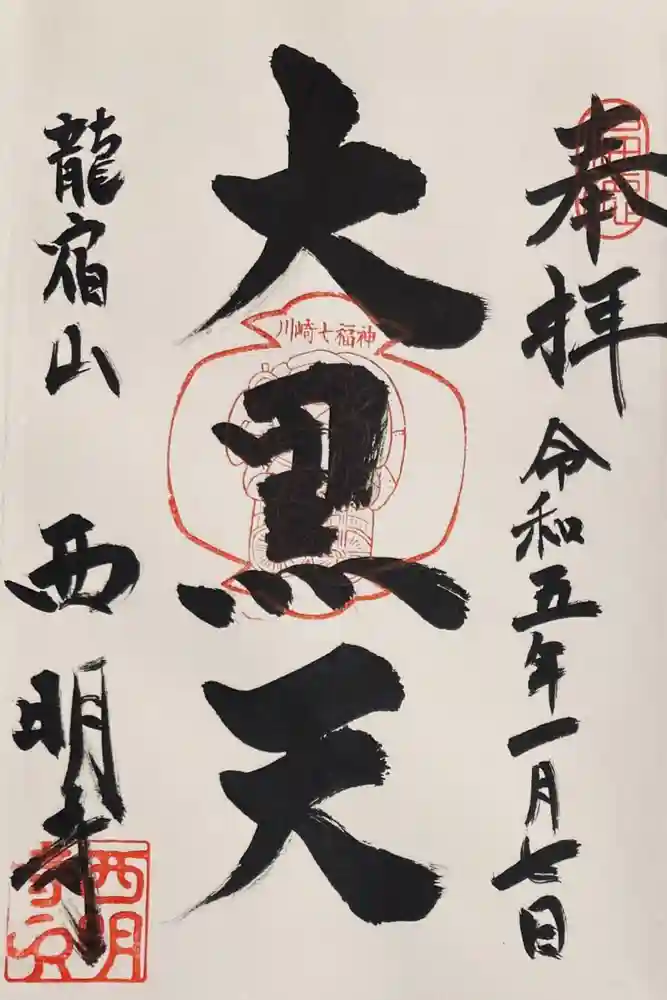 奉拝 令和五年一月七日
大黒天
川崎七福神
龍宿山 西明寺